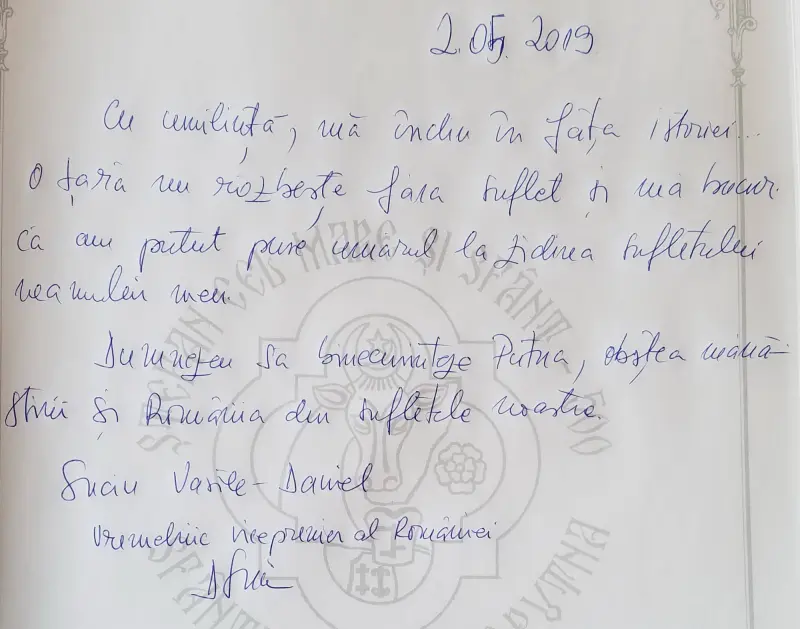 2.05. 2019
Cu umilință, mă închin în fața istoriei...
O țară nu răzbește fără suflet și mă bucur
că am putut pune umărul la zidirea sufletului
neamului meu.
Dumnezeu să binecuvinteze Putna, obștea mănă-
stirii și România din sufletele noastre.
Suciu Vasile-Daniel
vremelnic vicepremier al României
ȘTEFAN CEL MARE ȘI SFÂNT